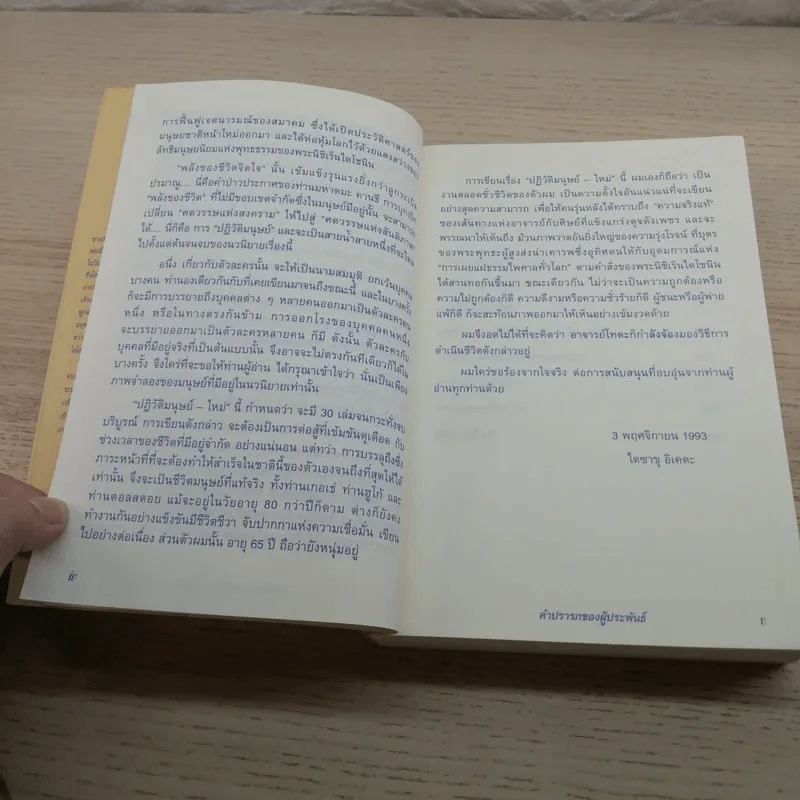 การฟื้นฟูเจตนารมณ์ของสมาคม ซึ่งได้เปิดประวัติศาสตร์ของ
มนุษยชาติหน้าใหม่ออกมา และได้ห่อหุ้มโลกไว้ด้วยแสงสว่างของ
ลัทธิมนุษยนิยมแห่งพุทธธรรมของพระนิชิเร็นไดโชนิน
"พลังของชีวิตจิตใจ" นั้น เข้มแข็งรุนแรงยิ่งกว่าลูกระเบิด
ปรมาณู.... นี่คือคำป่าวประกาศของท่านมหาตมะ คานธี การบุกเบิก
"พลังของชีวิต" ที่ไม่มีขอบเขตจำกัดซึ่งในมนุษย์มีอยู่นั้น จะสามารถ
เปลี่ยน "ศตวรรษแห่งสงคราม" ให้ไปสู่ "ศตวรรษแห่งสันติภาพ"
ได้.... นี่ก็คือ การ "ปฏิวัติมนุษย์" และจะเป็นสายน้ำสายหนึ่งที่จะไหล
ไปตั้งแต่ต้นจนจบของนวนิยายเรื่องนี้
อนึ่ง เกี่ยวกับตัวละครนั้น จะให้เป็นนามสมมุติ ยกเว้นบุคคล
บางคน ทำนองเดียวกันกับที่เคยเขียนมาจนถึงขณะนี้ และในบางครั้ง
ก็จะมีการบรรยายถึงบุคคลต่าง ๆ หลายคนออกมาเป็นตัวละครคน
หนึ่ง หรือในทางตรงกันข้าม การออกโรงของบุคคลคนหนึ่ง
จะบรรยายออกมาเป็นตัวละครหลายคน ก็มี ดังนั้น ตัวละครกับ
บุคคลที่มีอยู่จริงที่เป็นต้นแบบนั้น จึงอาจจะไม่ตรงกันทีเดียวก็ได้ใน
บางครั้ง จึงใคร่ที่จะขอให้ท่านผู้อ่าน ได้กรุณาเข้าใจว่า นั่นเป็นเพียง
ภาพจำลองของมนุษย์ที่มีอยู่ในนวนิยายเท่านั้น
"ปฏิวัติมนุษย์ – ใหม่" นี้ กำหนดว่า จะมี 30 เล่มจนกระทั่งจบ
บริบูรณ์ การเขียนดังกล่าว จะต้องเป็นการต่อสู้ที่เข้มข้นดุเดือด กับ
ช่วงเวลาของชีวิตที่มีอยู่จำกัด อย่างแน่นอน แต่ทว่า การบรรลุถึงซึ่ง
ภาระหน้าที่ที่จะต้องทำให้สำเร็จในชาตินี้ของตัวเองจนถึงที่สุดให้ได้
เท่านั้น จึงจะเป็นชีวิตมนุษย์ที่แท้จริง ทั้งท่านเกอเธ่ ท่านฮูโก้ และ
ท่านตอลสตอย แม้จะอยู่ในวัยอายุ 80 กว่าปีก็ตาม ต่างก็ยังคง
ทำงานกันอย่างแข็งขันมีชีวิตชีวา จับปากกาแห่งความเชื่อมั่น เขียน
ไปอย่างต่อเนื่อง ส่วนตัวผมนั้น อายุ 65 ปี ถือว่ายังหนุ่มอยู่
iv
การเขียนเรื่อง "ปฏิวัติมนุษย์ – ใหม่" นี้ ผมเองก็ถือว่า เป็น
งานตลอดชั่วชีวิตของตัวผม เป็นความตั้งใจอันแน่วแน่ที่จะเขียน
อย่างสุดความสามารถ เพื่อให้คนรุ่นหลังได้ทราบถึง "ความจริงแท้"
ของเส้นทางแห่งอาจารย์กับศิษย์ที่แข็งแกร่งดุจดังเพชร และจะ
พรรณนาให้เห็นถึง ม้วนภาพวาดอันยิ่งใหญ่ของความรุ่งโรจน์ ที่บุตร
ของพระพุทธะผู้สูงส่งน่าเคารพซึ่งอุทิศตนให้กับอุดมการณ์แห่ง
"การเผยแผ่ธรรมไพศาลทั่วโลก" ตามคำสั่งของพระนิชิเร็นไดโชนิน
ได้สานทอกันขึ้นมา ขณะเดียวกัน ไม่ว่าจะเป็นความถูกต้องหรือ
ความไม่ถูกต้องก็ดี ความดีงามหรือความชั่วร้ายก็ดี ผู้ชนะหรือผู้พ่าย
แพ้ก็ดี ก็จะสะท้อนภาพออกมาให้เห็นอย่างเข้มงวดด้วย
ผมจึงอดไม่ได้ที่จะคิดว่า อาจารย์โทดะก็กำลังจ้องมองวิธีการ
ดำเนินชีวิตดังกล่าวอยู่
ผมใคร่ขอร้องจากใจจริง ต่อการสนับสนุนที่อบอุ่นจากท่านผู้
อ่านทุกท่านด้วย
3 พฤศจิกายน 1993
ไดซาขุ อิเคดะ
คำปรารภของผู้ประพันธ์
v